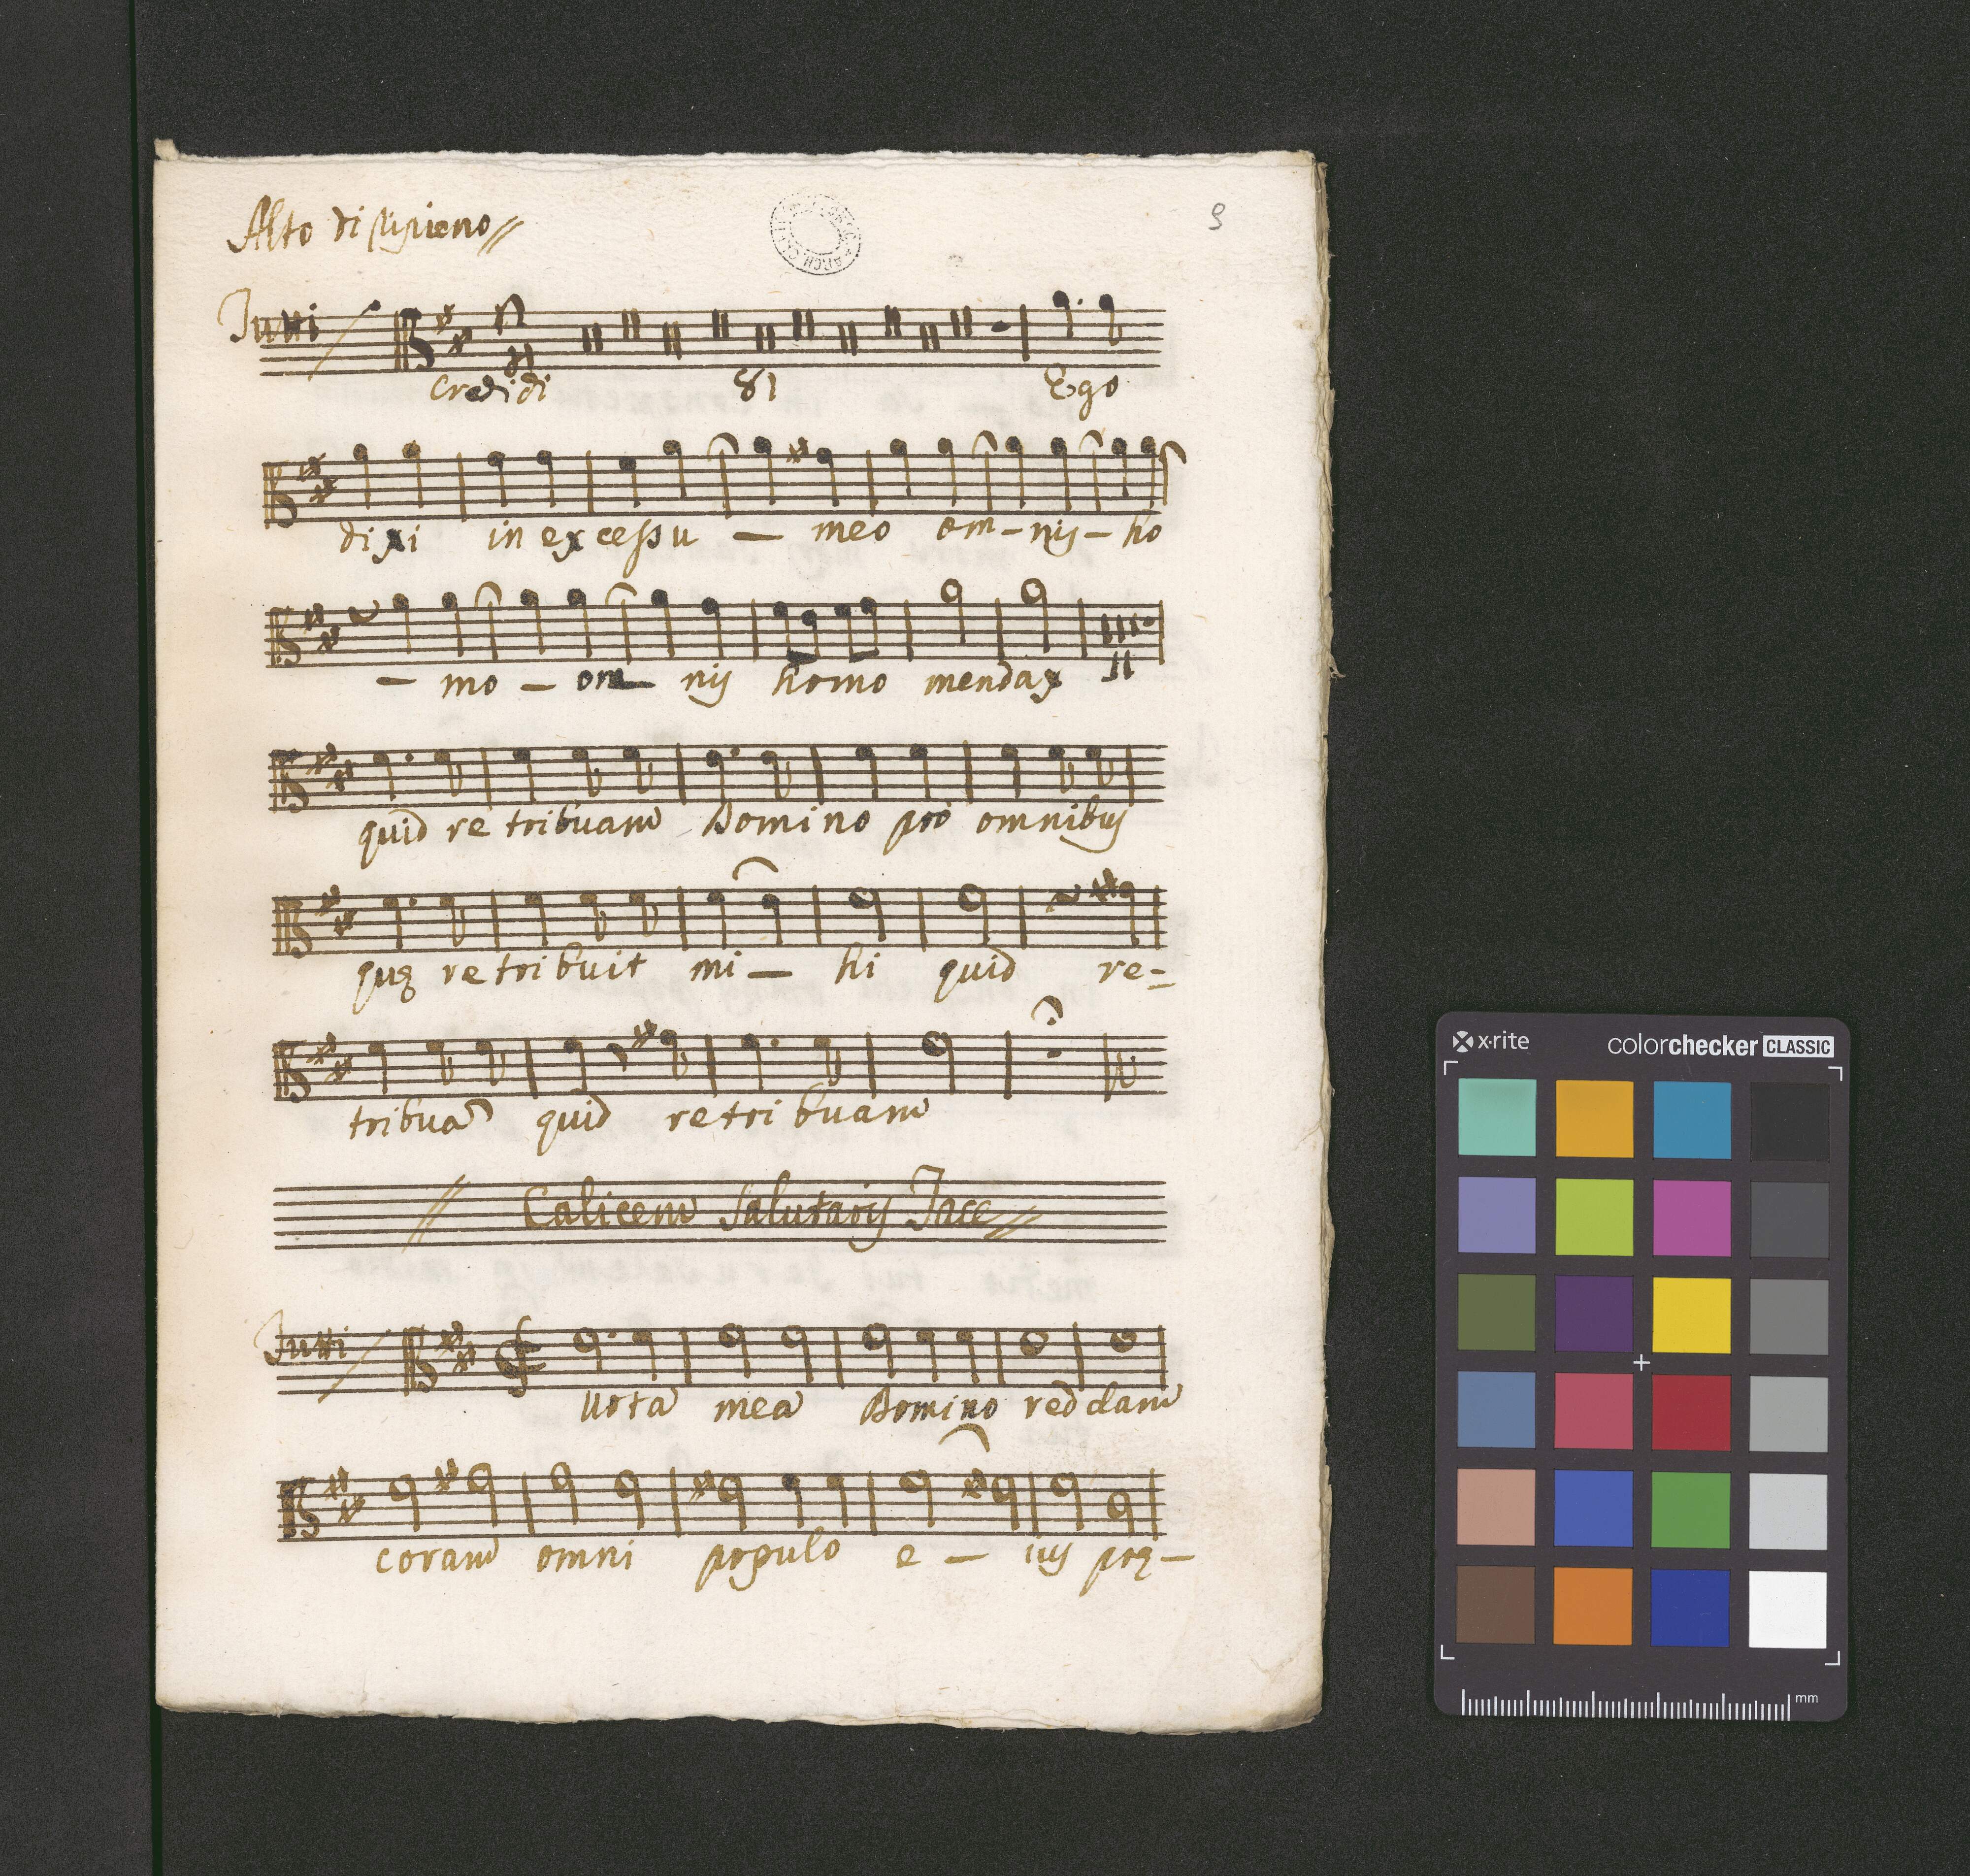 Alto di ripieno
9
Tutti
Credidi 81 Ego
dixi in excessu — meo om-nis-ho
— mo — om— nis homo mendax 11
quid retribuam Domino pro omnibus
quę retribuit mi — hi quid re-
tribuã quid retribuam
Calicem salutaris Tace
Tutti
Vota mea Domino reddam
coram omni populo e — ius pre —
x·rite colorchecker CLASSIC
mm